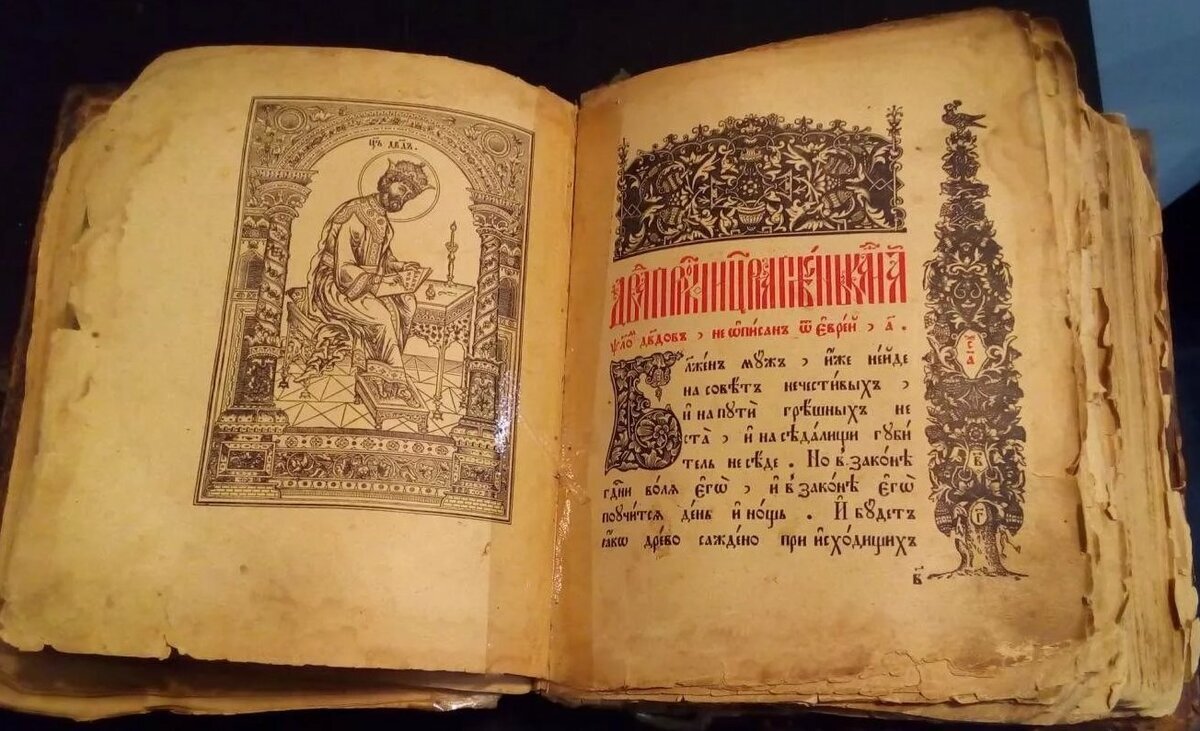 Ц҃ь дв҃дъ.
ѱало́мъ дв҃довъ , не ѡ҆пи́санъ ѿ є҆вре́й , а҃ .
Бл҃же́нъ мꙋ́жъ , и҆́же не и҆́де
на совѣ́тъ нечести́выхъ ,
и҆ на пꙋтѝ грѣ́шныхъ не
ста̀ , и҆ на сѣда́лищи гꙋби́
тель не сѣ́де . Но в̾ зако́нѣ
гд҇ни во́лѧ є҆гѡ̀ , и҆ в̾ зако́нѣ є҆гѡ̀
поꙋчи́тсѧ де́нь и҆ но́щь . И҆ бꙋ́детъ
ꙗ҆́кѡ дре́во саждено̀ при и҆схо́дищихъ
в҃
г҃
в҃